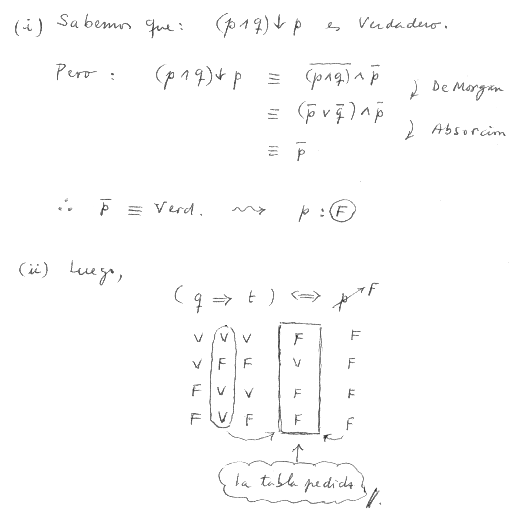 (i) Sabemos que: (p∧q)↓p es Verdadero.
Pero: (p∧q)↓p ≡ \overline{(p∧q)} ∧ p̄
≡ (p̄ ∨ q̄) ∧ p̄ De Morgan
≡ p̄ Absorción
∴ p̄ ≡ Verd. ⇝ p: F
(ii) Luego,
(q ⇒ t) ⇔ p F
V V V F F
V F F V F
F V V F F
F V F F F
La tabla pedida //.